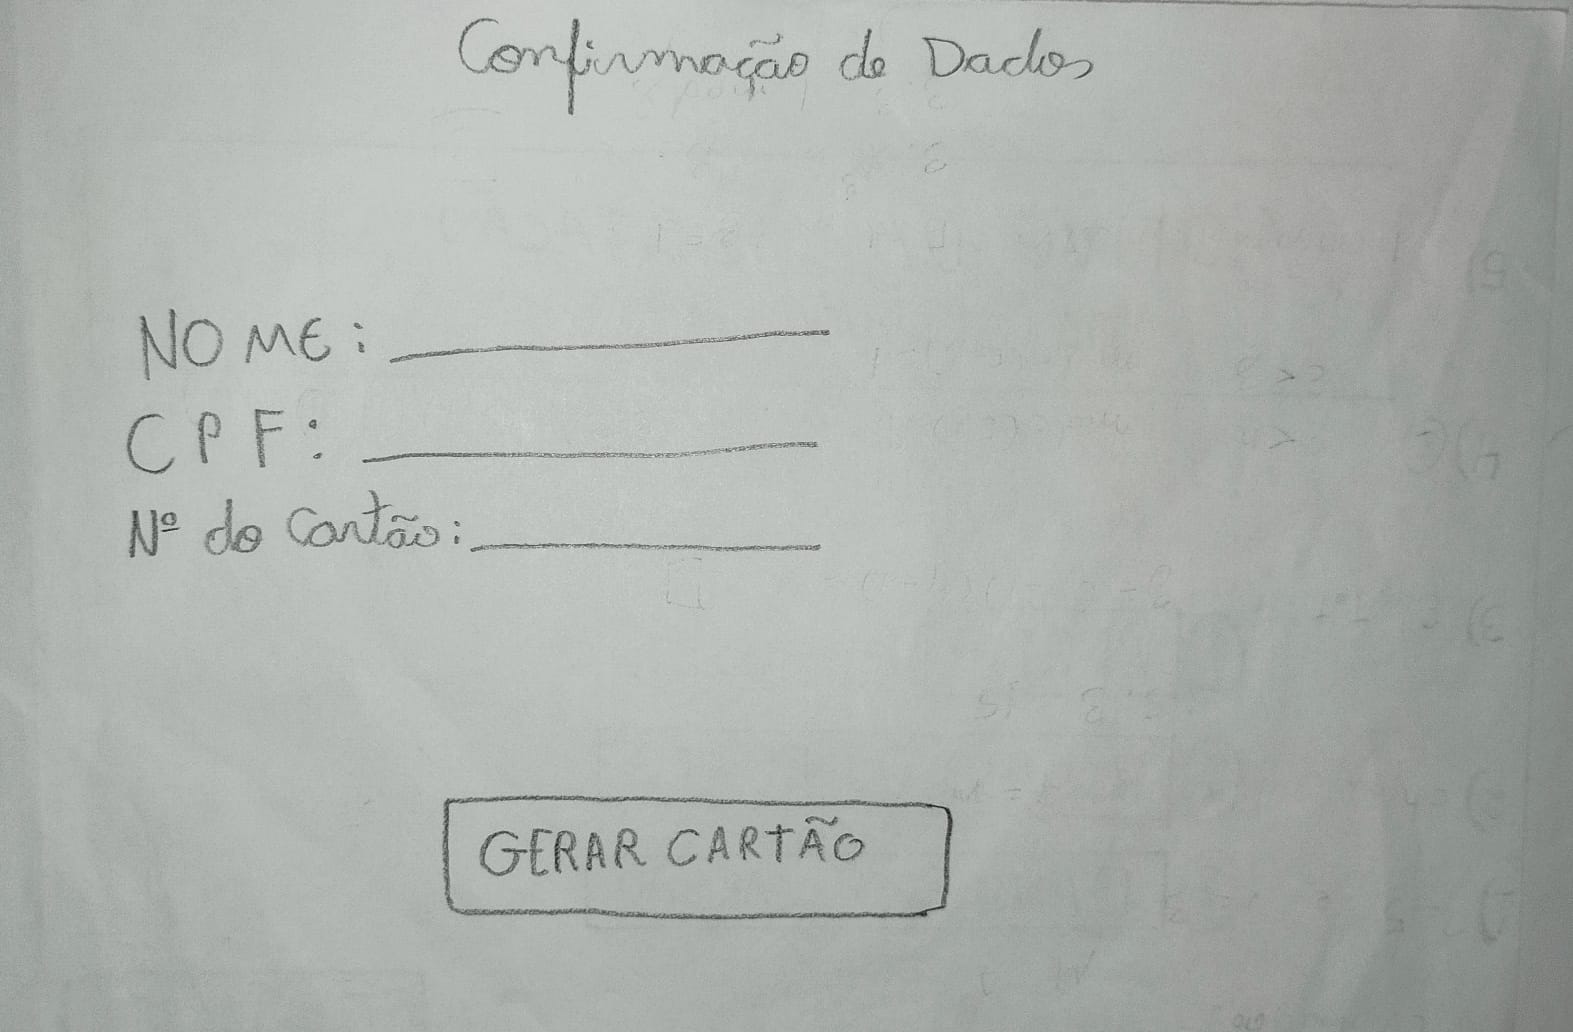 Confirmação de Dados
NOME:
CPF:
Nº do Cartão:
GERAR CARTÃO